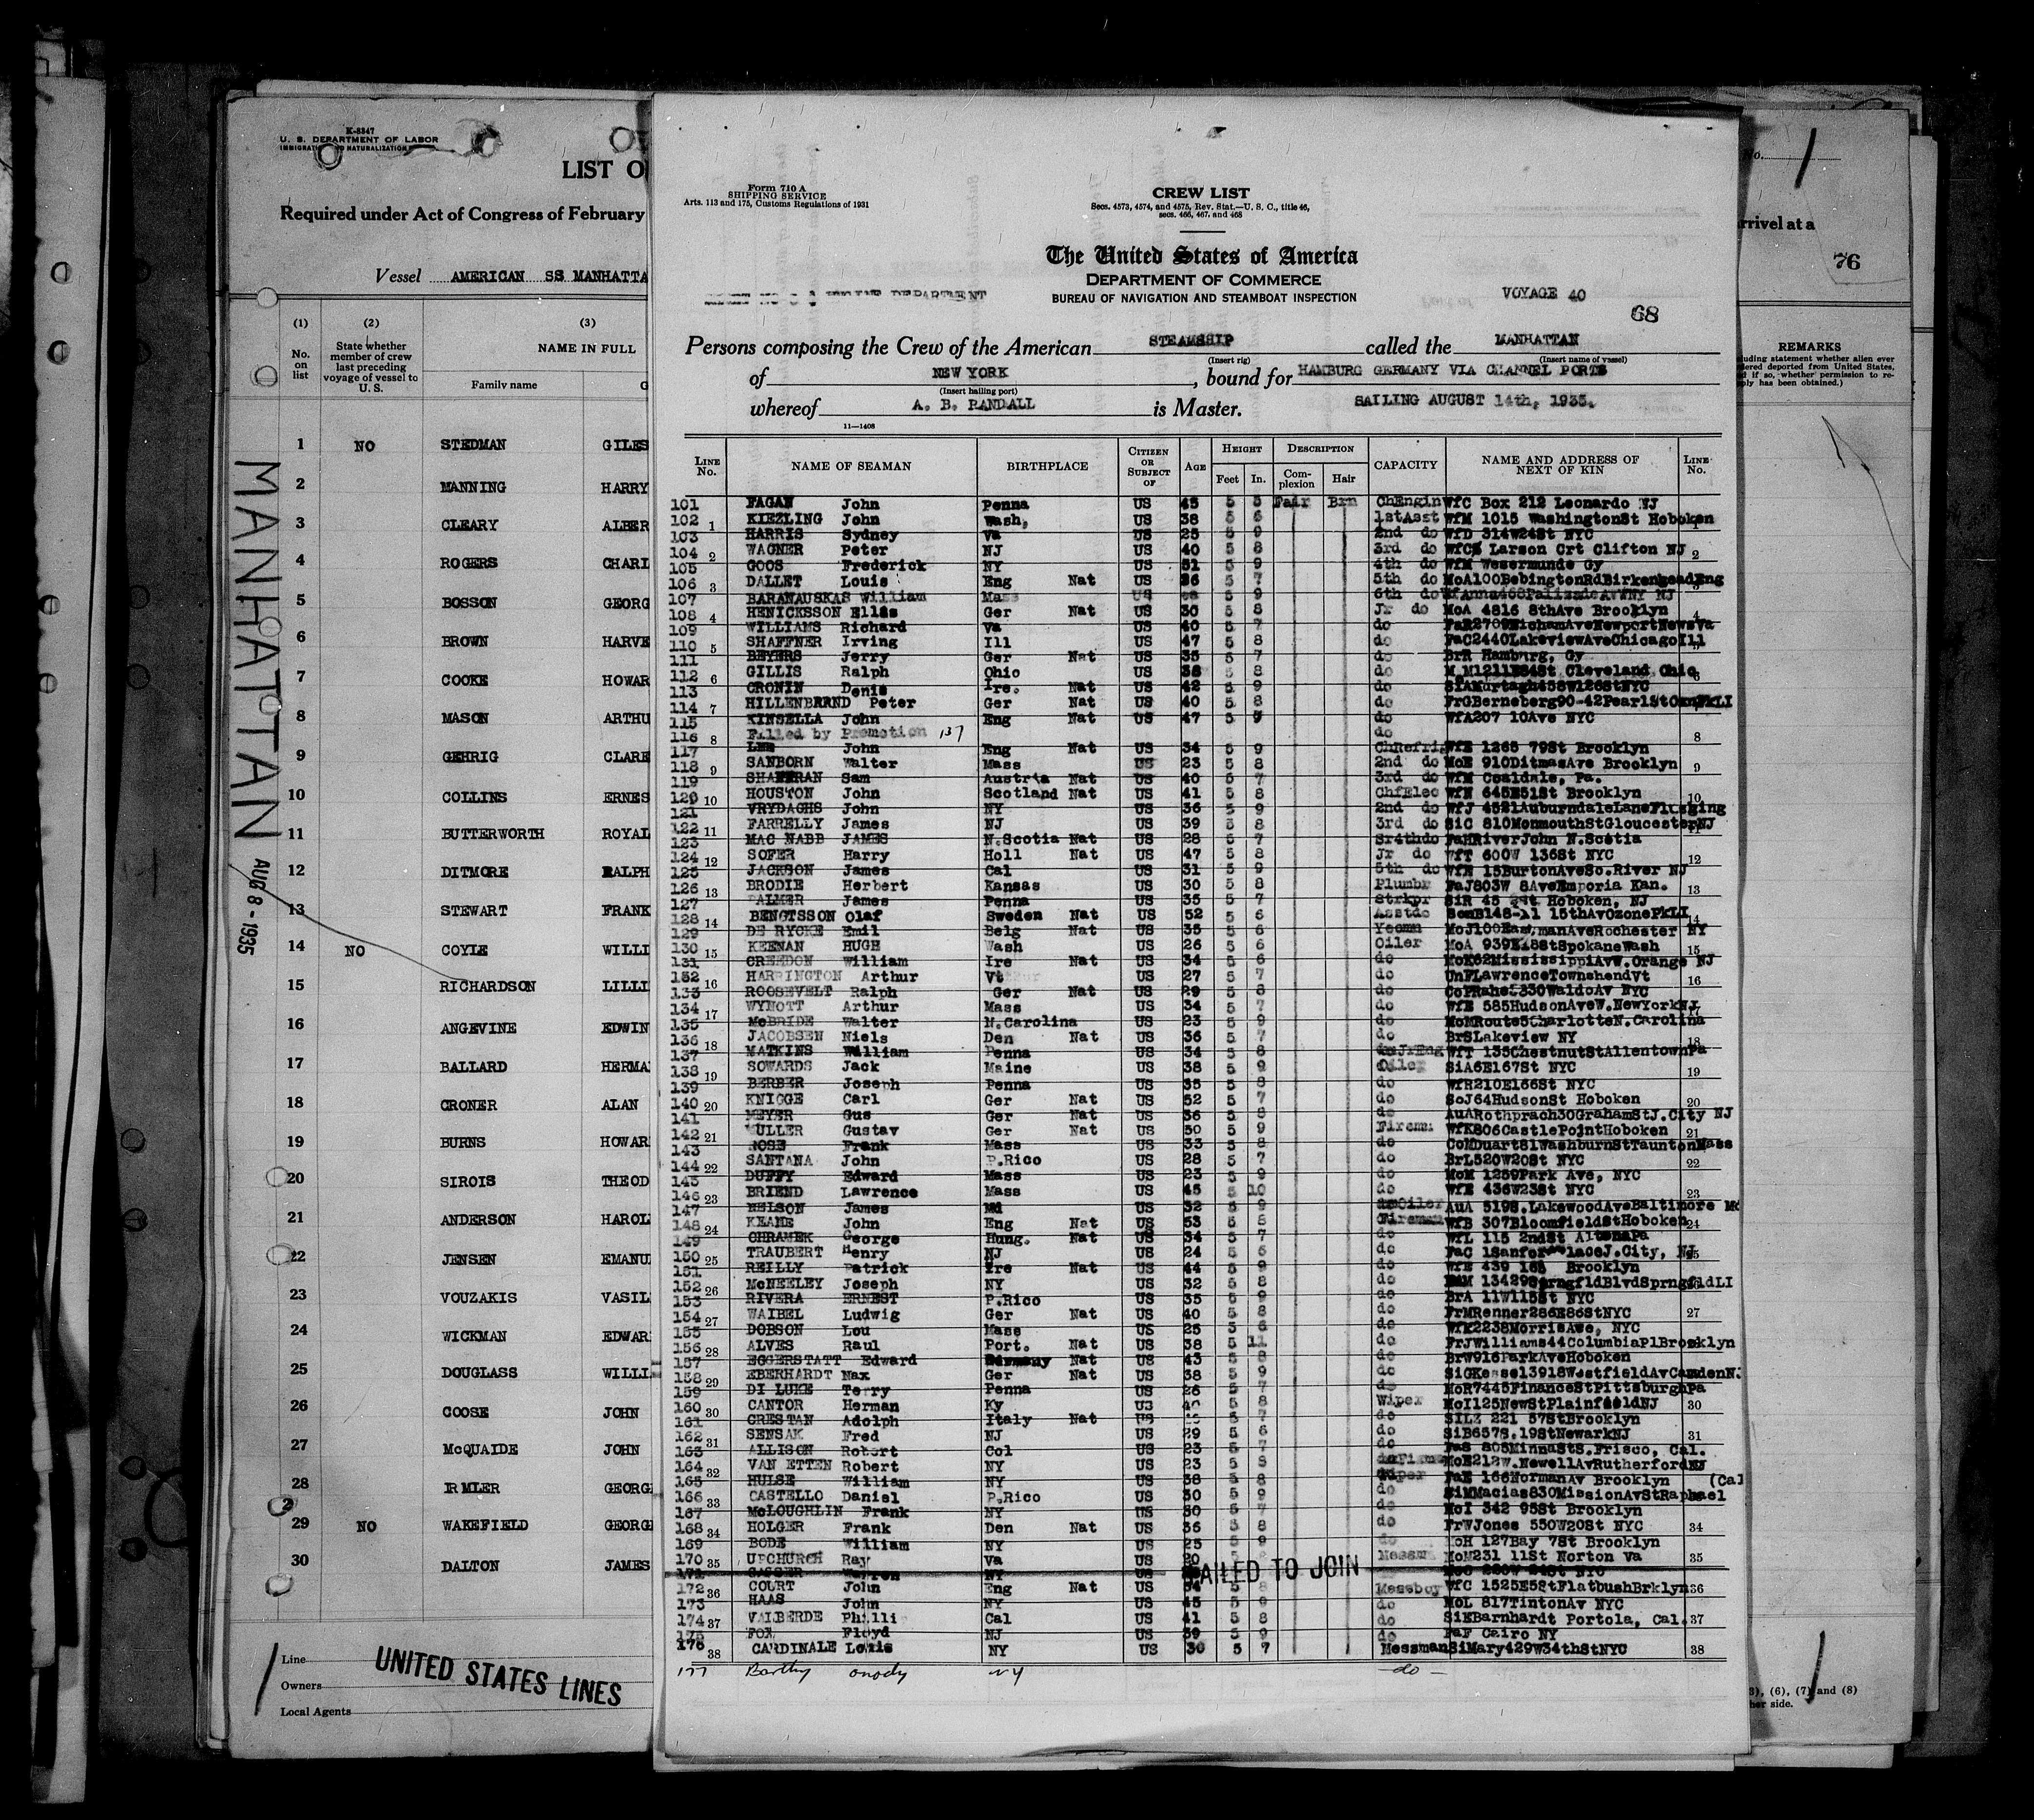 K-8347
U. S. DEPARTMENT OF LABOR
LIST O
Required under Act of Congress of February
Vessel AMERICAN SS MANHATTA
(1) (2) (3)
No. on list
State whether member of crew last preceding voyage of vessel to U. S.
NAME IN FULL
Family name G
1 NO STEDMAN GILES
2 MANNING HARRY
3 CLEARY ALBER
4 ROGERS CHARL
5 BOSSON GEORG
6 BROWN HARVE
7 COOKE HOWAR
8 MASON ARTHU
9 GEHRIG CLARE
10 COLLINS ERNES
11 BUTTERWORTH ROYAL
12 DITMORE RALPH
13 STEWART FRANK
14 NO COYLE WILLI
15 RICHARDSON LILLI
16 ANGEVINE EDWIN
17 BALLARD HERMA
18 CRONER ALAN
19 BURNS HOWAR
20 SIROIS THEOD
21 ANDERSON HAROL
22 JENSEN EMANU
23 VOUZAKIS VASIL
24 WICKMAN EDWAR
25 DOUGLASS WILLI
26 GOOSE JOHN
27 McQUAIDE JOHN
28 IRMLER GEORG
29 NO WAKEFIELD GEORG
30 DALTON JAMES
MANHATTAN
AUG 8 - 1935
Line
Owners
Local Agents
UNITED STATES LINES
Form 710 A
SHIPPING SERVICE
Arts. 113 and 175, Customs Regulations of 1931
CREW LIST
Secs. 4573, 4574, and 4575, Rev. Stat.—U. S. C., title 46,
secs. 466, 467, and 468
The United States of America
DEPARTMENT OF COMMERCE
BUREAU OF NAVIGATION AND STEAMBOAT INSPECTION
VOYAGE 40
68
Persons composing the Crew of the American STEAMSHIP called the MANHATTAN
(Insert rig) (Insert name of vessel)
of NEW YORK, bound for HAMBURG GERMANY VIA CHANNEL PORTS
(Insert hailing port)
whereof A. B. RANDALL is Master. SAILING AUGUST 14th, 1935.
11—1408
LINE No. NAME OF SEAMAN BIRTHPLACE CITIZEN OR SUBJECT OF AGE HEIGHT Feet In. DESCRIPTION Complexion Hair CAPACITY NAME AND ADDRESS OF NEXT OF KIN LINE No.
101 FAGAN John Penna US 45 5 5 Fair Brn ChEngin WfC Box 212 Leonardo NJ
102 KIEZLING John Wash, US 38 5 6 1stAsst WfM 1015 WashingtonSt Hoboken
103 HARRIS Sydney Va US 25 5 9 2nd do WfD 314W24St NYC
104 WAGNER Peter NJ US 40 5 8 3rd do Larson Crt Clifton NJ
105 GOOS Frederick NY US 51 5 9 4th do WfM Wesermunde Gy
106 DALLET Louis Eng Nat US 26 5 7 5th do MoA100BebingtonRdBirkenheadEng
107 BARANAUSKAS William Mass US 5 9 6th do
108 HENICKSSON Ellis Ger Nat US 30 5 8 Jr do MoA 4816 8thAve Brooklyn
109 WILLIAMS Richard Va US 40 5 7 do
110 SHAFFNER Irving Ill US 47 5 8 do FaC2440LakeviewAveChicagoIll
111 BEYERS Jerry Ger Nat US 35 5 7 do BrR Hamburg, Gy
112 GILLIS Ralph Ohio US 38 5 8 do Cleveland Ohio
113 CRONIN Denis Ire. Nat US 42 5 9 do SiAMurtagh458W126StNYC
114 HILLENBRAND Peter Ger Nat US 40 5 8 do
115 KINSELLA John Eng Nat US 47 5 do WfA207 10Ave NYC
116 Filled by Promotion 137 do
117 LEE John Eng Nat US 34 5 9 ChRefrig WfE 1265 79St Brooklyn
118 SANBORN Walter Mass US 23 5 8 2nd do MoE 910DitmasAve Brooklyn
119 Sam Austria Nat US 40 5 7 3rd do WfM Coaldale, Pa.
120 HOUSTON John Scotland Nat US 41 5 8 ChfElec WfN 645E51St Brooklyn
121 VRYDAGHS John NY US 36 5 9 2nd do WfJ 4521AuburndaleLaneFlushing
122 FARRELLY James NJ US 39 5 8 3rd do SiC 810MonmouthStGloucesterNJ
123 MAC NABB JAMES N.Scotia Nat US 28 5 7 Sr4thdo FaHRiverJohn N.Scotia
124 SOFER Harry Holl Nat US 47 5 8 Jr do WfT 600W 136St NYC
125 JACKSON James Cal US 31 5 9 5th do WfH 15BurtonAveSo.River NJ
126 BRODIE Herbert Kansas US 30 5 8 Plumbr FaJ803W 8AveEmporia Kan.
127 PALMER James Penna US 35 5 7 Strkpr SiR 45 St Hoboken, NJ
128 BENGTSSON Olaf Sweden Nat US 52 5 6 Asstdo 15thAvOzonePkLI
129 DE RYCKE Emil Belg Nat US 35 5 6 Yeomn MoJ100EastmanAveRochester NY
130 KEENAN HUGH Wash US 26 5 6 Oiler MoA 939E18StSpokaneWash
131 CREEDON William Ire Nat US 34 5 6 do MoK62MississippiAvW.Orange NJ
132 HARRINGTON Arthur Vt US 27 5 7 do UnFLawrenceTownshendVt
133 ROOSEVELT Ralph Ger Nat US 29 5 8 do
134 WYNOTT Arthur Mass US 34 5 7 do WfE 585HudsonAveW.NewYorkNJ
135 McBRIDE Walter N.Carolina US 23 5 9 do MoMRoute5CharlotteN.Carolina
136 JACOBSEN Niels Den Nat US 36 5 7 do BrSLakeview NY
137 MATKINS William Penna US 34 5 8 JrEng WfT 135ChestnutStAllentownPa
138 SOWARDS Jack Maine US 38 5 9 Oiler SiA6E167St NYC
139 BERBER Joseph Penna US 35 5 8 do WfR210E166St NYC
140 KNIGGE Carl Ger Nat US 52 5 7 do SoJ64HudsonSt Hoboken
141 MEYER Gus Ger Nat US 36 5 8 do AuARothprach30GrahamStJ.City NJ
142 MULLER Gustav Ger Nat US 50 5 9 Firemn WfK806CastlePointHoboken
143 ROSE Frank Mass US 33 5 8 do CoMDuart81WashburnStTauntonMass
144 SANTANA John P.Rico US 28 5 7 do BrL520W20St NYC
145 DUFFY Edward Mass US 23 5 9 do MoM 1259Park Ave, NYC
146 BRIEND Lawrence Mass US 45 5 10 do WfE 436W23St NYC
147 NELSON James Md US 32 5 9 Oiler AuA 519S.LakewoodAveBaltimore Md
148 KEANE John Eng Nat US 53 5 8 Fireman WfB 307BloomfieldStHoboken
149 CHRAMEK George Hung. Nat US 34 5 7 do WfL 115 2ndSt AltonaPa
150 TRAUBERT Henry NJ US 24 5 6 do J.City, NJ
151 REILLY Patrick Ire Nat US 44 5 9 do WfE 439 Brooklyn
152 McNEELEY Joseph NY US 32 5 8 do
153 RIVERA ERNEST P.Rico US 35 5 9 do BrA 11W115St NYC
154 WAIBEL Ludwig Ger Nat US 40 5 8 do FrMRenner286E86StNYC
155 DOBSON Lou Mass US 25 5 6 do WfK2238MorrisAve, NYC
156 ALVES Raul Port. Nat US 38 5 11 do FrJWilliams44ColumbiaPlBrooklyn
157 EGGERSTATT Edward Germany Nat US 43 5 8 do BrW916ParkAveHoboken
158 EBERHARDT Max Ger Nat US 38 5 9 do
159 DI LUKE Terry Penna US 26 5 7 do MoR7445FinanceStPittsburghPa
160 CANTOR Herman Ky US 5 8 Wiper MoI125NewStPlainfieldNJ
161 CRESTAN Adolph Italy Nat US 5 7 do 221 57StBrooklyn
162 SENSAK Fred NJ US 29 5 6 do SiB657S.19StNewarkNJ
163 ALLISON Robert Col US 23 5 7 do FaS 805MinnaStS.Frisco, Cal.
164 VAN ETTEN Robert NY US 23 5 8 MoE212W.NewellAvRutherfordNJ
165 HULSE William NY US 38 5 8 Wiper FaE 166NormanAv Brooklyn (Cal
166 CASTELLO Daniel P.Rico US 30 5 9 do SiMMacias830MissionAvStRaphael
167 McLOUGHLIN Frank NY US 30 5 7 do MoI 342 95St Brooklyn
168 HOLGER Frank Den Nat US 36 5 8 do FrWJones 550W20St NYC
169 BODE William NY US 25 5 9 do MoH 127Bay 7St Brooklyn
170 UPCHURCH Ray Va US 20 Messm MoM231 11St Norton Va
171 Warren NY US FAILED TO JOIN
172 COURT John Eng Nat US 54 5 8 Messboy WfC 1525E5StFlatbushBrklyn
173 HAAS John NY US 45 5 9 do MoL 817TintonAv NYC
174 VALBERDE Philli Cal US 41 5 8 do SiEBarnhardt Portola, Cal.
175 FOX Floyd NJ US 39 5 9 do FaF Cairo NY
176 CARDINALE Louis NY US 30 5 7 Messman SiMary429W34thStNYC
177 Barthy NY do
No. 1
arrival at a
76
REMARKS